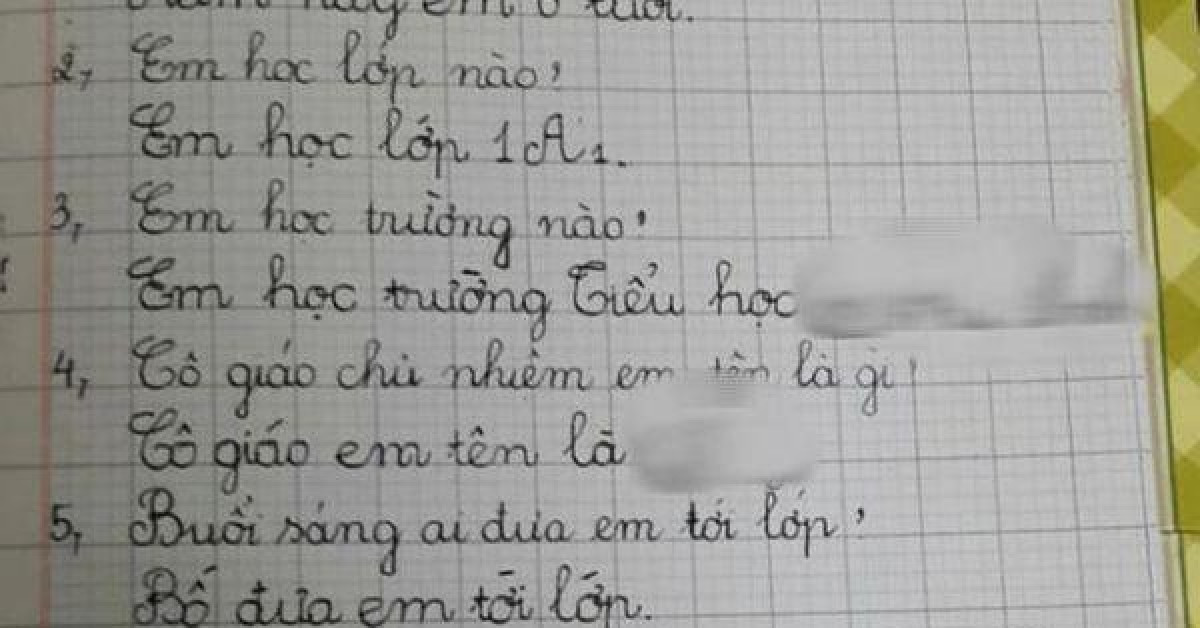 năm nay em 6 tuổi.
2, Em học lớp nào?
Em học lớp 1A1.
3, Em học trường nào?
Em học trường Tiểu học
4, Cô giáo chủ nhiệm em tên là gì?
Cô giáo em tên là
5, Buổi sáng ai đưa em tới lớp?
Bố đưa em tới lớp.